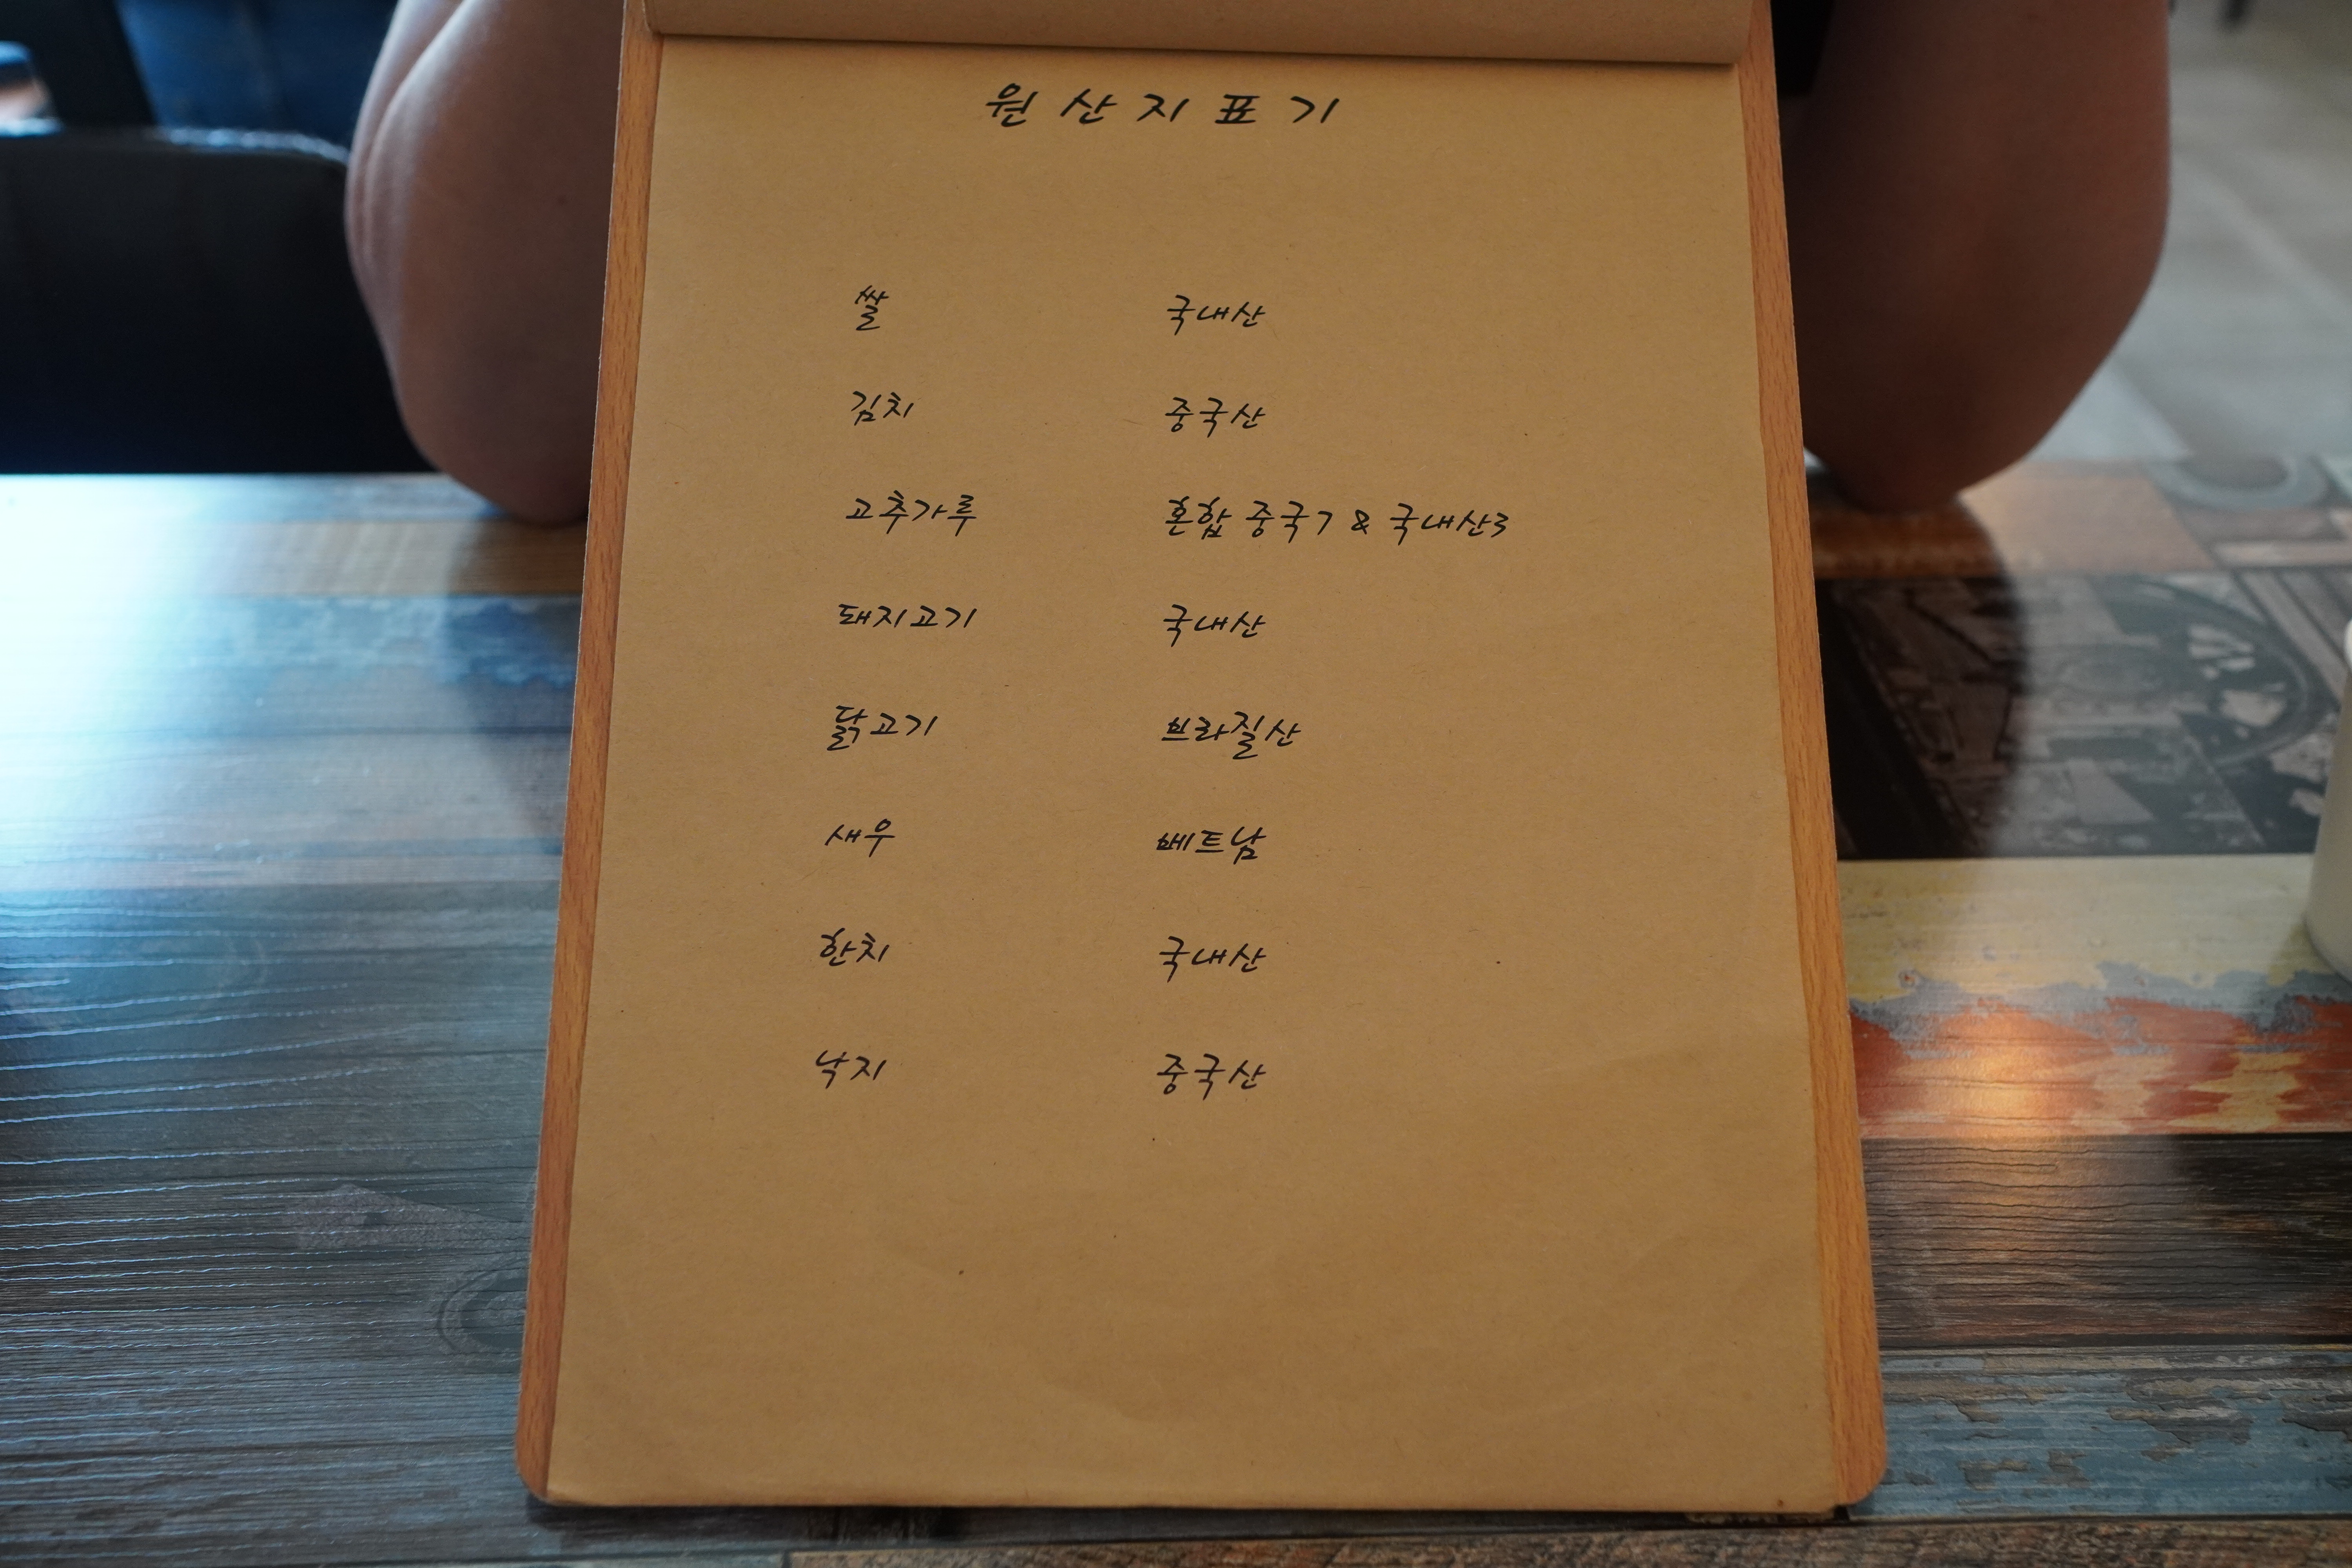 원산지표기
쌀 국내산
김치 중국산
고추가루 혼합 중국7 & 국내산3
돼지고기 국내산
닭고기 브라질산
새우 베트남
한치 국내산
낙지 중국산